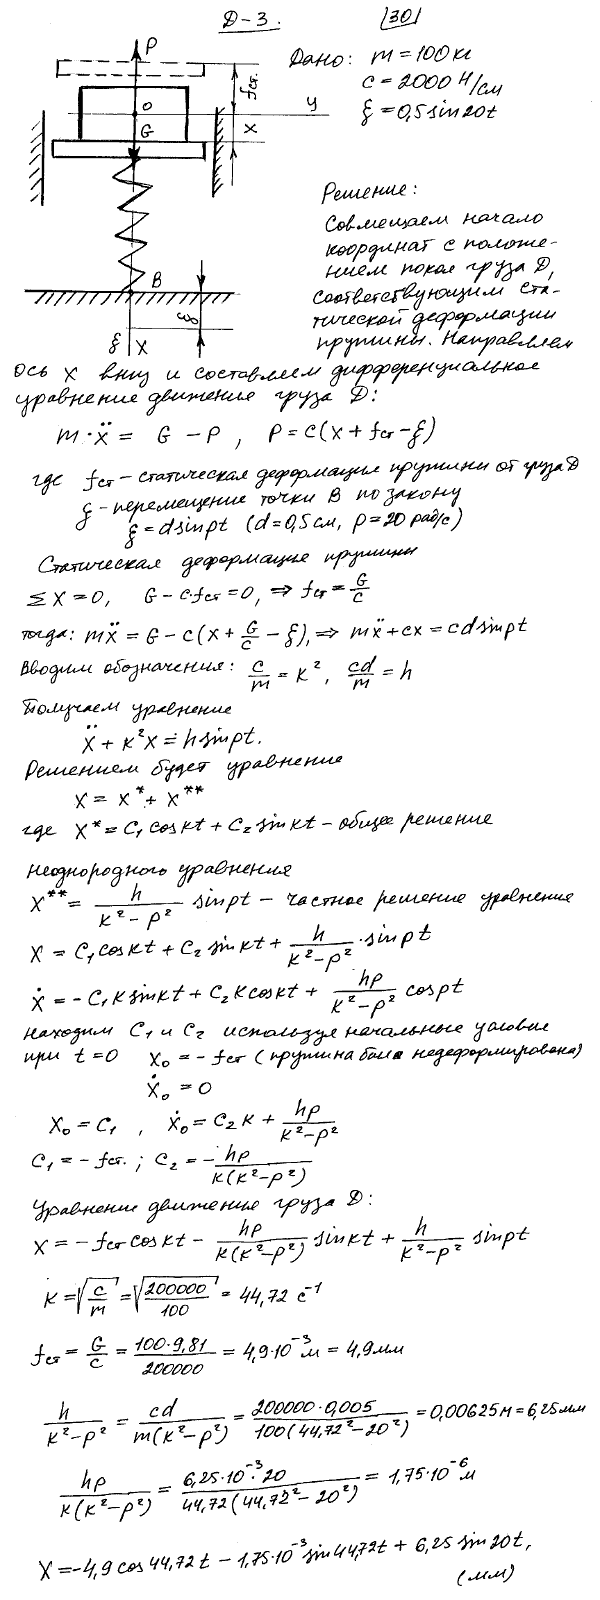 Д-3.
(30)
P
fст.
O
y
G
X
B
ξ
ξ
X
Дано: m=100кг
c=2000 Н/см
ξ=0,5sin20t
Решение:
Совмещаем начало
координат с положе-
нием покоя груза D,
соответствующим ста-
тической деформации
пружины. Направляем
ось X вниз и составляем дифференциальное
уравнение движение груза D:
m·ẍ = G - P , P=c(x+fст-ξ)
где fст-статическая деформация пружины от груза D
ξ-перемещение точки B по закону
ξ=dsinpt (d=0,5см, p=20 рад/с)
Статическая деформация пружины
ΣX=0, G-cfст=0,⇒ fст=G/c
тогда: mẍ=G-c(x+G/c-ξ),⇒ mẍ+cx=cdsinpt
Вводим обозначения: c/m=k², cd/m=h
Получаем уравнение
ẍ+k²x=hsinpt.
Решением будет уравнение
x=x*+x**
где x*=C₁coskt+C₂sinkt-общее решение
неоднородного уравнения
x**=h/(k²-p²) sinpt - частное решение уравнение
x=C₁coskt+C₂sinkt+h/(k²-p²)·sinpt
ẋ=-C₁ksinkt+C₂kcoskt+hp/(k²-p²) cospt
находим C₁ и C₂ используя начальные условие
при t=0 x₀=-fст (пружина была недеформирована)
ẋ₀=0
x₀=C₁ , ẋ₀=C₂k+hp/(k²-p²)
C₁=-fст. ; C₂=-hp/(k(k²-p²))
Уравнение движение груза D:
x=-fстcoskt-hp/(k(k²-p²)) sinkt+h/(k²-p²) sinpt
k=√(c/m)=√(200000/100)=44,72 c⁻¹
fст=G/c=100·9,81/200000=4,9·10⁻³м=4,9мм
h/(k²-p²)=cd/(m(k²-p²))=200000·0,005/(100(44,72²-20²))=0,00625м=6,25мм
hp/(k(k²-p²))=6,25·10⁻³·20/(44,72(44,72²-20²))=1,75·10⁻⁶м
x=-4,9cos44,72t-1,75·10⁻³sin44,72t+6,25sin20t,
(мм)